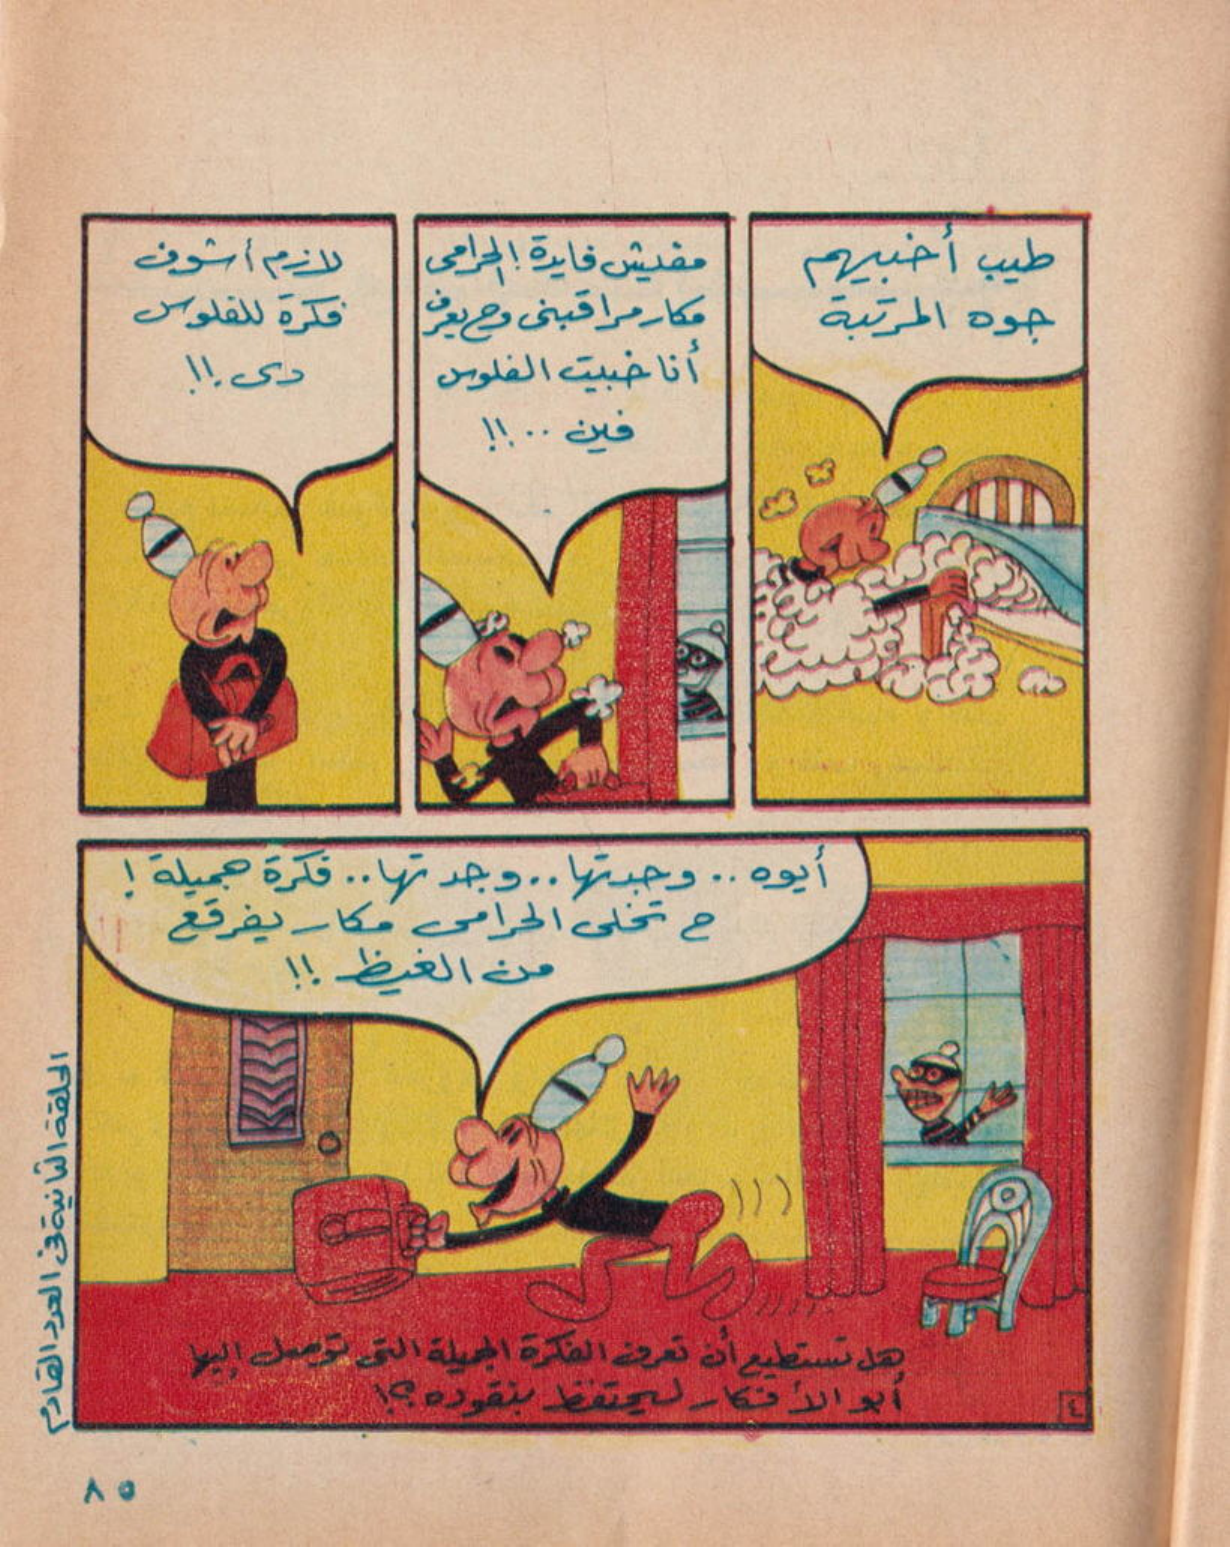 طيب أخبيهم
جوه المرتبة
مفيش فايدة! الحرامى
مكار مراقبنى وح يعرف
أنا خبيت الفلوس
فين ..!!
لازم أشوف
فكرة للفلوس
دى.!!
أيوه .. وجدتها .. وجدتها .. فكرة جميلة !
ح تخلى الحرامى مكار يفرقع
من الغيظ .!!
هل تستطيع أن تعرف الفكرة الجميلة التى توصل إليها
أبو الأفكار ليحتفظ بنقوده ؟!
٤
الحلقة الثانية فى العدد القادم
٨٥